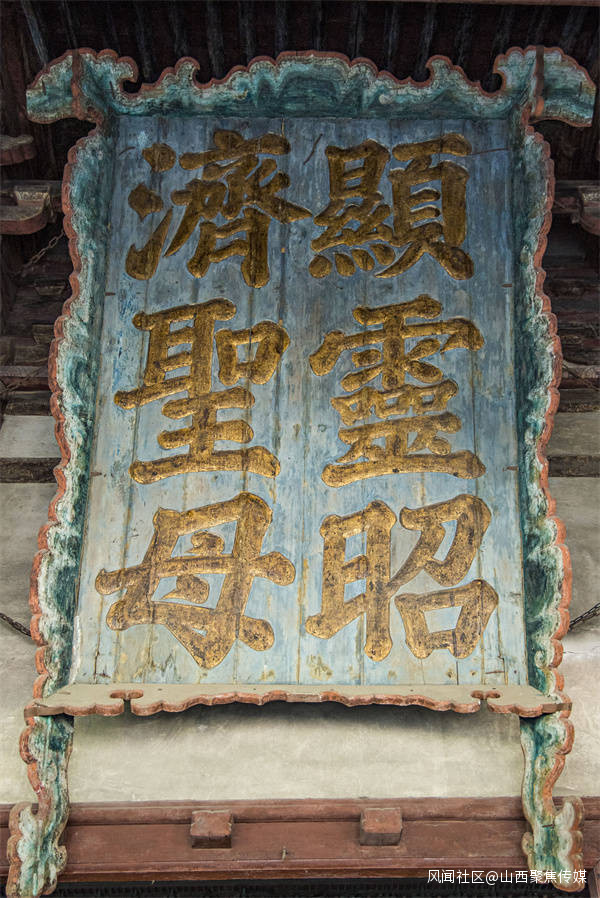 顯靈昭
濟聖母
风闻社区@山西聚焦传媒